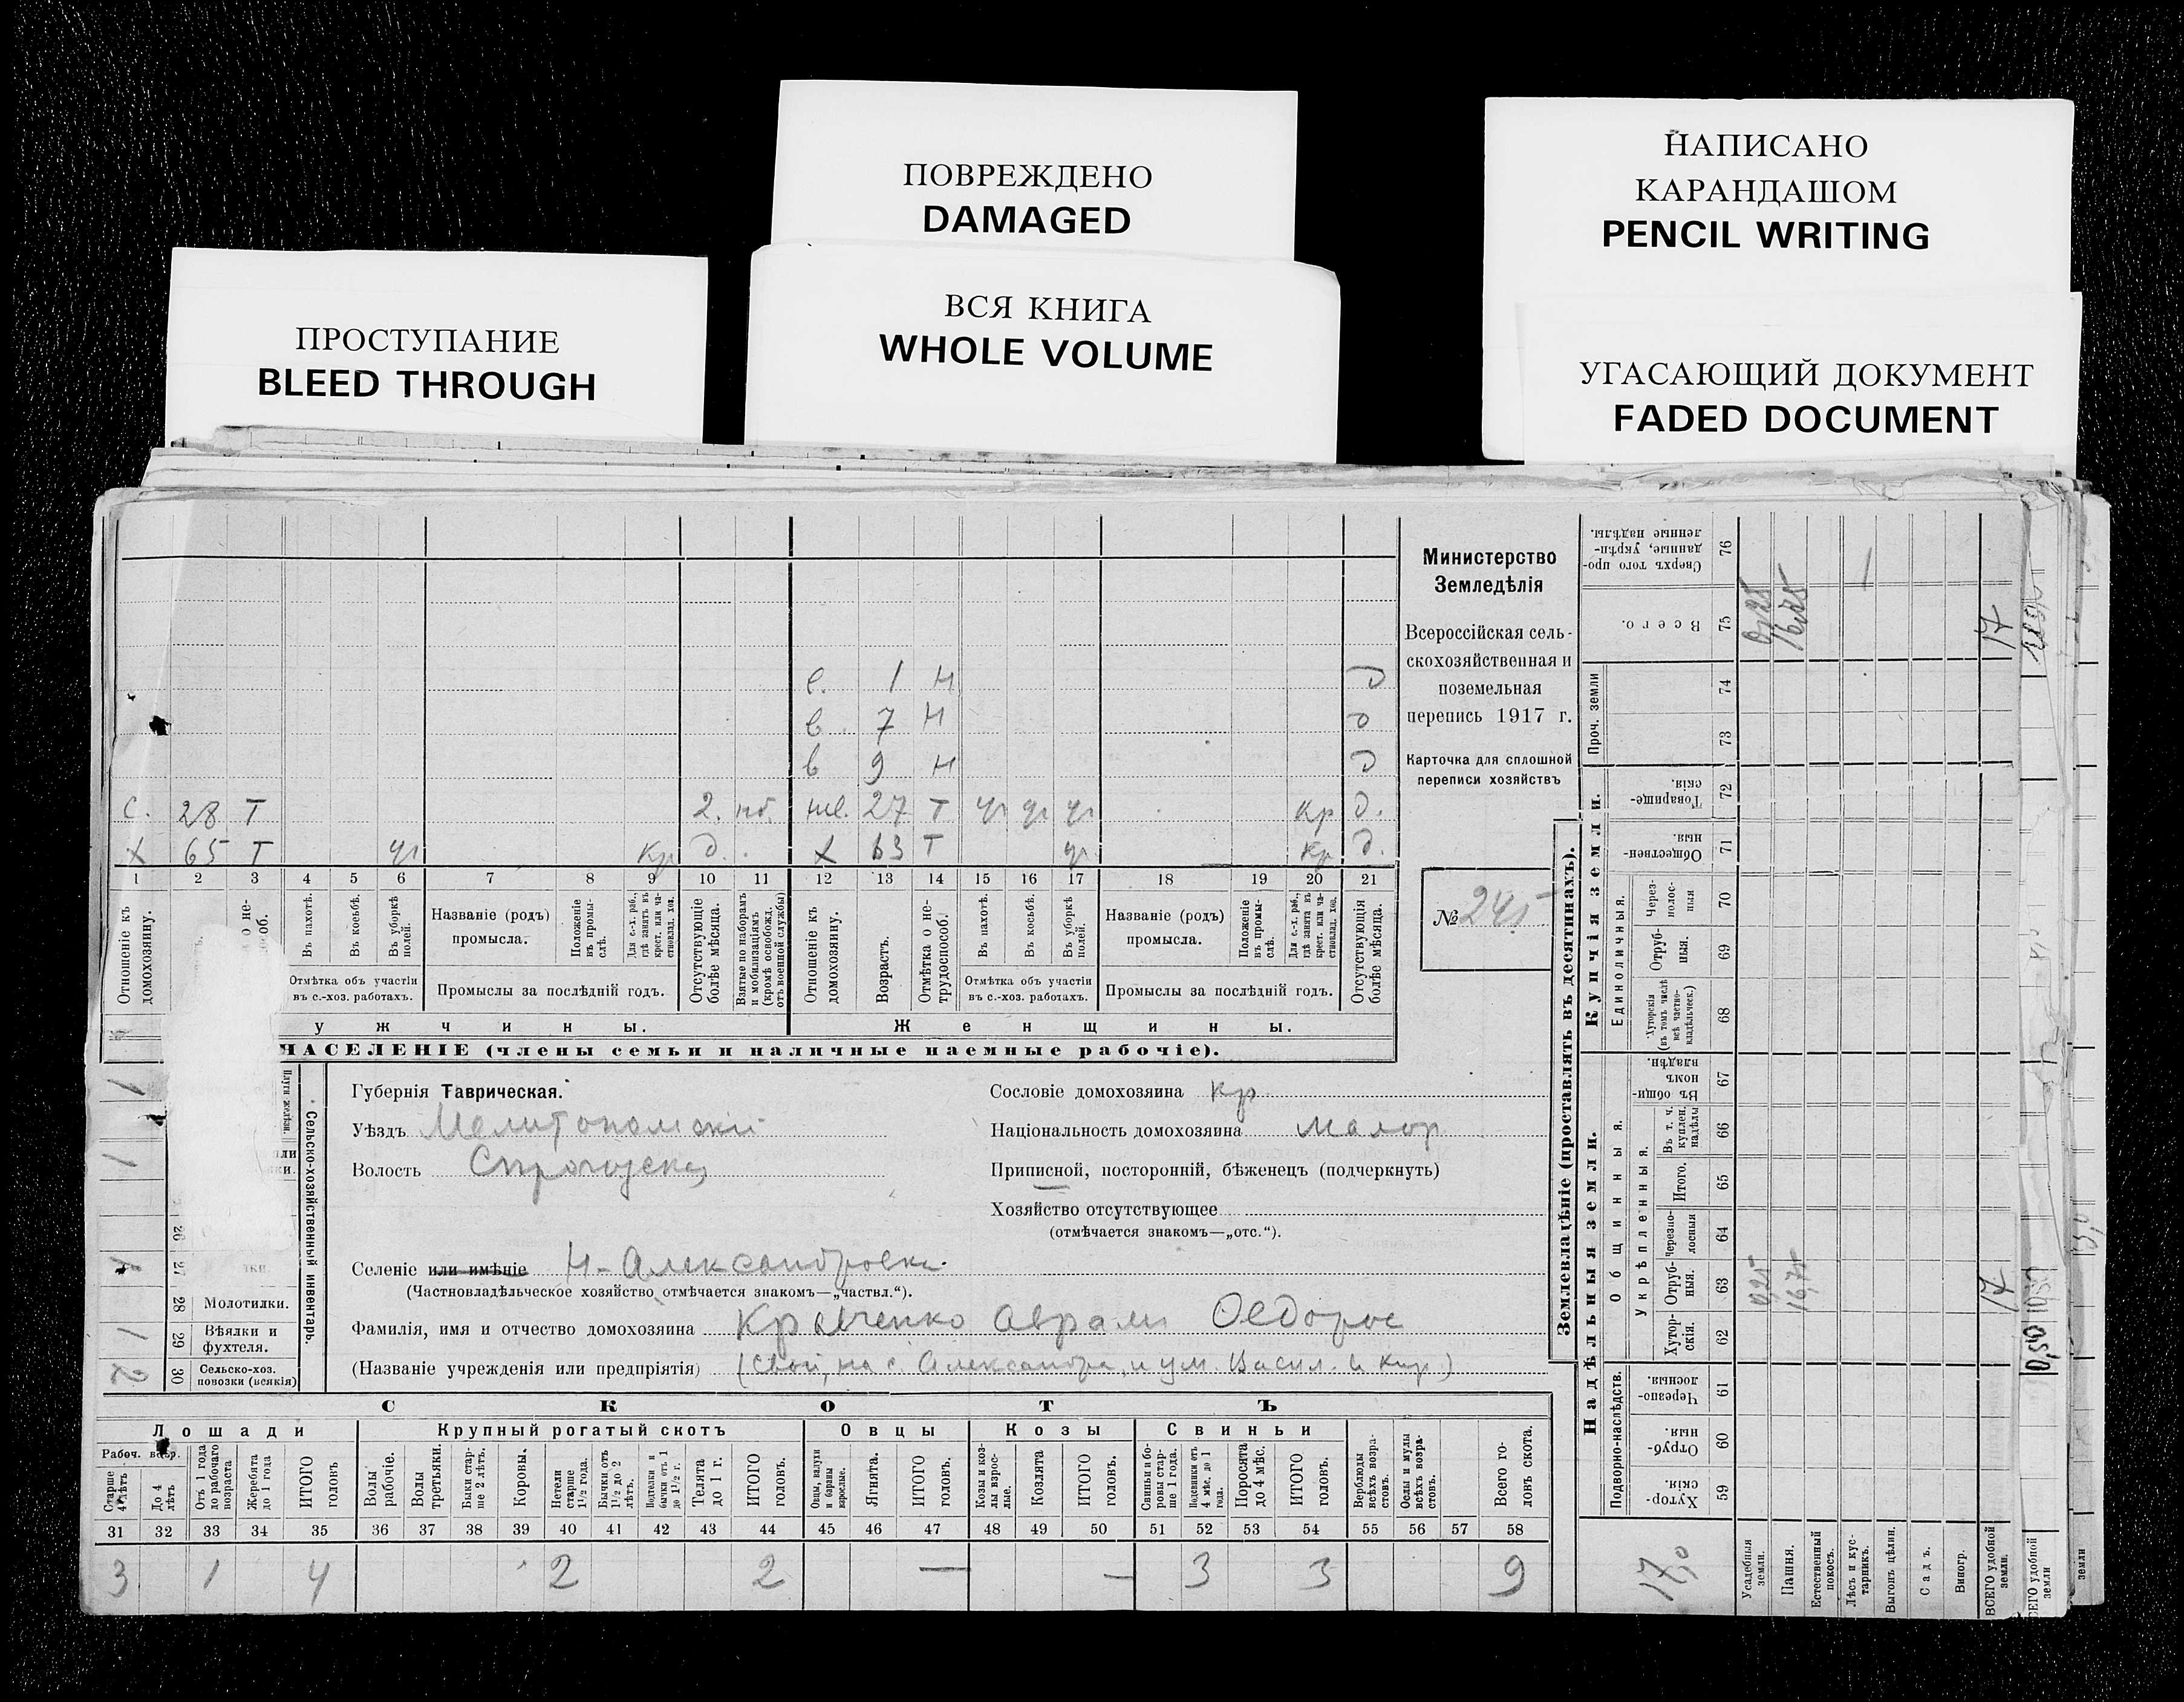 ПОВРЕЖДЕНО
DAMAGED
НАПИСАНО
КАРАНДАШОМ
PENCIL WRITING
ПРОСТУПАНИЕ
BLEED THROUGH
ВСЯ КНИГА
WHOLE VOLUME
УГАСАЮЩИЙ ДОКУМЕНТ
FADED DOCUMENT
Министерство
Земледѣлія
Всероссійская сель-
скохозяйственная и
поземельная
перепись 1917 г.
Карточка для сплошной
переписи хозяйствъ
№ 245
1 Н д
в 7 Н д
в 9 Н д
с. 28 Т 2. нб. 27 Т уг уг уг кр д.
х 65 Т уг кр д. х 63 Т уг кр д.
1 2 3 4 5 6 7 8 9 10 11 12 13 14 15 16 17 18 19 20 21
Отношеніе къ домохозяину.
Въ пахотѣ.
Въ косьбѣ.
Въ уборкѣ полей.
Названіе (родъ) промысла.
Положеніе въ промы-слѣ.
Для с.-х. раб., гдѣ занятъ въ крест. или ча-стновлад. хоз.
Отсутствующіе болѣе мѣсяца.
Взятые по наборамъ и мобилизаціямъ (кромѣ освобожд. отъ военной службы)
Отношеніе къ домохозяину.
Возрастъ.
Отмѣтка о не-трудоспособ.
Въ пахотѣ.
Въ косьбѣ.
Въ уборкѣ полей.
Названіе (родъ) промысла.
Положеніе въ промы-слѣ.
Для с.-х. раб., гдѣ занята въ крест. или ча-стновлад. хоз.
Отсутствующія болѣе мѣсяца.
Отмѣтка объ участіи въ с.-хоз. работахъ.
Промыслы за послѣдній годъ.
Отмѣтка объ участіи въ с.-хоз. работахъ.
Промыслы за послѣдній годъ.
у ж ч и н ы.
Ж е н щ и н ы.
НАСЕЛЕНІЕ (члены семьи и наличные наемные рабочіе).
Сельско-хозяйственный инвентарь.
26
27
28 Молотилки.
29 Вѣялки и фухтеля. 1
30 Сельско-хоз. повозки (всякія) 2
Губернія Таврическая.
Уѣздъ Мелитопольскій
Волость
Селеніе или имѣніе Н-Александровка
(Частновладѣльческое хозяйство отмѣчается знакомъ—„частвл.“).
Фамилія, имя и отчество домохозяина Кравченко Аврам Федоров
(Названіе учрежденія или предпріятія)
Сословіе домохозяина кр
Національность домохозяина малор
Приписной, посторонній, бѣженецъ (подчеркнуть)
Хозяйство отсутствующее
(отмѣчается знакомъ—„отс.“).
С К О Т Ъ
Лошади
Крупный рогатый скотъ
Овцы
Козы
Свиньи
Рабоч. возр.
Старше 4 лѣтъ
До 4 лѣтъ
Отъ 1 года до рабочаго возраста
Жеребята до 1 года
ИТОГО головъ
Волы рабочіе.
Волы третьяки.
Быки стар-ше 2 лѣтъ.
Коровы.
Нетели старше 1½ года.
Бычки отъ 1½ до 2 лѣтъ.
Нетелки и бычки отъ 1 до 1½ г.
Телята до 1 г.
ИТОГО головъ.
Овцы, валухи и бараны взрослые.
Ягнята.
ИТОГО головъ.
Козы и коз-лы взрос-лые.
Козлята
ИТОГО головъ.
Свиньи и бо-ровы стар-ше 1 года.
Подсвинки отъ 4 мѣс. до 1 года.
Поросята до 4 мѣс.
ИТОГО головъ.
Верблюды всѣхъ возра-стовъ.
Ослы и мулы всѣхъ возра-стовъ.
Всего го-ловъ скота.
31 32 33 34 35 36 37 38 39 40 41 42 43 44 45 46 47 48 49 50 51 52 53 54 55 56 57 58
3 1 4 2 2 — — 3 3 9
Землевладѣніе (проставлять въ десятинахъ).
Надѣльныя земли.
Купчія земли.
Подворно-наслѣдств.
Общинныя.
Укрѣпленныя.
Единоличныя.
Проч. земли
Сверхъ того про-данные, укрѣп-ленные надѣлы. 76
Всего. 75
74
73
Товарище-скія. 72
Обществен-ныя. 71
Через-полос-ныя 70
Отруб-ныя. 69
Хуторскія (въ томъ числѣ всѣ частно-владѣльческ.) 68
Въ общин-номъ владѣн. 67
Въ т. ч. куплен. надѣлы 66
Итого. 65
Черезпо-лосныя 64
Отруб-ныя. 63
Хутор-скія. 62
Черезпо-лосныя. 61
Отруб-ныя. 60
Хутор-скія. 59
0,25
16,75
17
0,25
16,75
17
17,0
Усадебныя земли.
Пашня.
Естественный покосъ.
Лѣсъ и кус-тарникъ.
Выгонъ цѣлин.
Садъ.
Виногр.
ВСЕГО удобной земли.
10,50